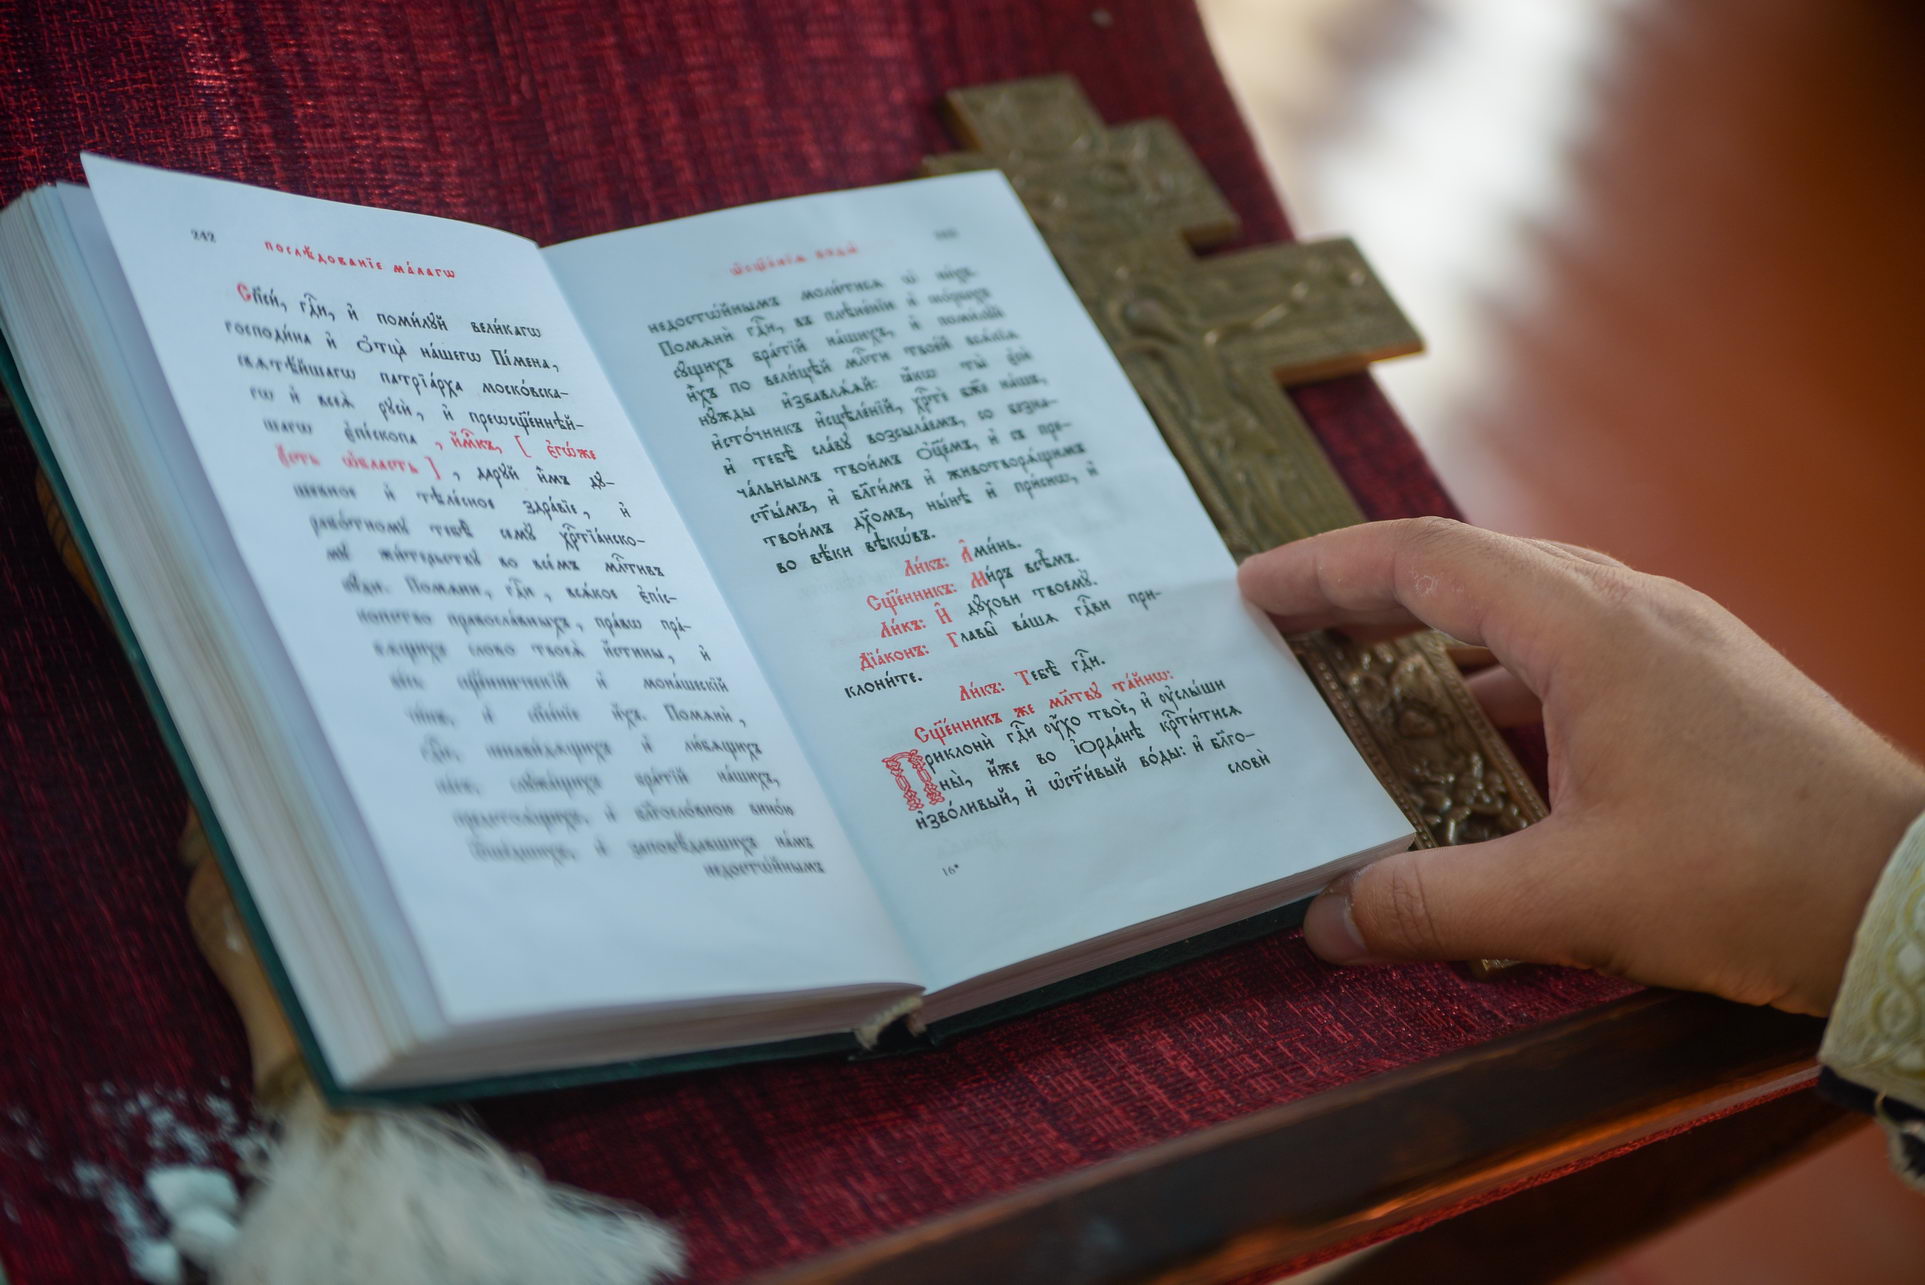 242
послѣ́дованїе ма́лагѡ
Сп҃си́, гдⷭ҇и, и҆ поми́лꙋй вели́каго
господи́на и҆ ѻ҆тца̀ на́шегѡ Пі́мена,
свѧтѣ́йшагѡ патрїа́рха моско́вска-
гѡ и҆ всеѧ̀ рꙋсѝ, и҆ преѡсщ҃е́ннѣй-
шагѡ є҆пі́скопа, и҆м҃къ, [ є҆гѡ́же
є҆́сть ѡ҆́бласть ], да́рꙋй и҆̀мъ дꙋ-
ше́вное и҆ тѣле́сное здра́вїе, и҆
рабо́тномꙋ тебѣ̀ семꙋ̀ хрⷭ҇тїа́нско-
мꙋ жи́тельствꙋ во всѣ́мъ мл҃тивъ
бꙋ́ди. Помѧнѝ, гдⷭ҇и, всѧ́кое є҆пі́с-
копство правосла́вныхъ, пра́вѡ пра́-
вѧщихъ сло́во твоеѧ̀ и҆́стины, и҆
сщ҃е́нническїй и҆ мона́шескїй
и҆ сп҃се́нїе и҆́хъ. Помѧнѝ,
гдⷭ҇и, ненави́дѧщихъ и҆ лю́бѧщихъ
на́съ, слꙋжа́щихъ бра́тїй на́шихъ,
предстоѧ́щихъ, и҆ бл҃гослове́нною вино́ю
ѿше́дшихъ, и҆ заповѣ́давшихъ на́мъ
недосто́йнымъ
ѡ҆сщ҃е́нїѧ воды̀
недостѡ́йнымъ моли́тисѧ ѡ҆ ни́хъ.
Помѧнѝ гдⷭ҇и, въ плѣне́нїи и҆ ско́рбехъ
сꙋ́щихъ бра́тїй на́шихъ, и҆ поми́лꙋй
и҆̀хъ по вели́цѣй мл҃ти твое́й всѧ́кїѧ
нꙋ́жды и҆збавлѧ́ѧй: ꙗ҆́кѡ ты̀ є҆сѝ
и҆сто́чникъ и҆сцѣле́нїй, хрⷭ҇тѐ бж҃е на́шъ,
и҆ тебѣ̀ сла́вꙋ возсыла́емъ, со безна-
ча́льнымъ твои́мъ ѻ҆ц҃е́мъ, и҆ съ пре-
ст҃ы́мъ, и҆ бл҃ги́мъ и҆ животворѧ́щимъ
твои́мъ дх҃омъ, ны́нѣ и҆ при́снѡ, и҆
во вѣ́ки вѣкѡ́въ.
Ли́къ: А҆ми́нь.
Сщ҃е́нникъ: Ми́ръ всѣ̑мъ.
Ли́къ: И҆ дꙋ́хови твоемꙋ̀.
Дїа́конъ: Главы̑ ва́шѧ гдⷭ҇ви при-
клони́те.
Ли́къ: Тебѣ̀ гдⷭ҇и.
Сщ҃е́нникъ же мл҃твꙋ та́йнѡ:
Приклонѝ гдⷭ҇и ᲂу҆́хо твоѐ, и҆ ᲂу҆слы́ши
ны̀, и҆́же во і҆ѻрда́нѣ крⷭ҇ти́тисѧ
и҆зво́ливый, и҆ ѡ҆ст҃и́вый во́ды: и҆ бл҃го-
словѝ
16*